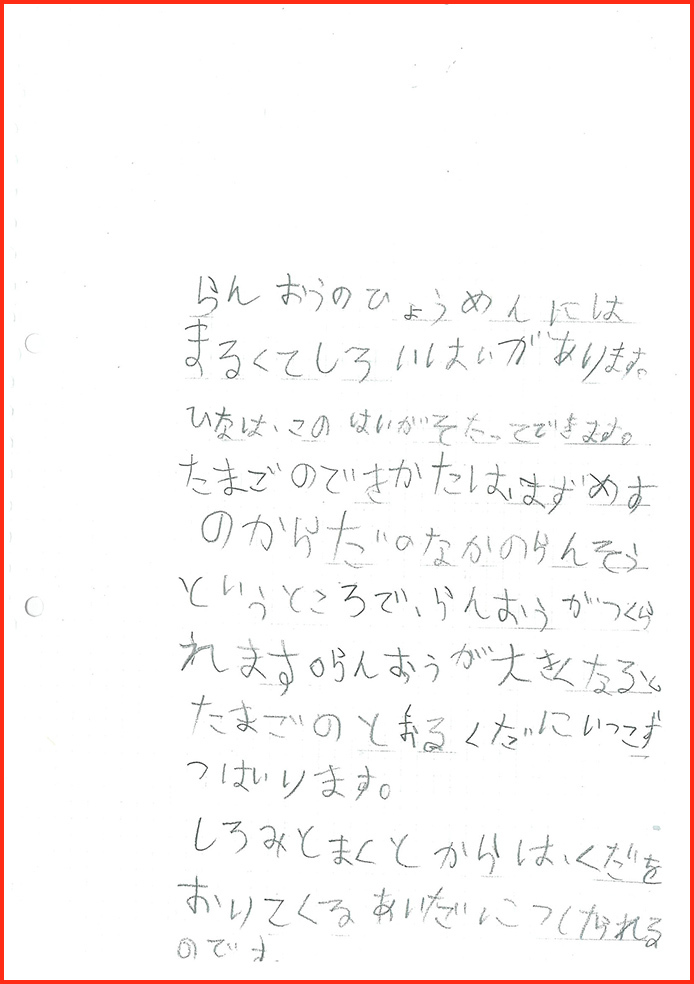 らんおうのひょうめんには
まるくてしろいはいがあります。
ひなは、このはいがそだってできます。
たまごのできかたは、まずめす
のからだのなかのらんそう
というところで、らんおうがつくら
れます。らんおうが大きくなると
たまごのとおるくだにいっこず
つはいります。
しろみとまくとからは、くだを
おりてくるあいだにつくられる
のです